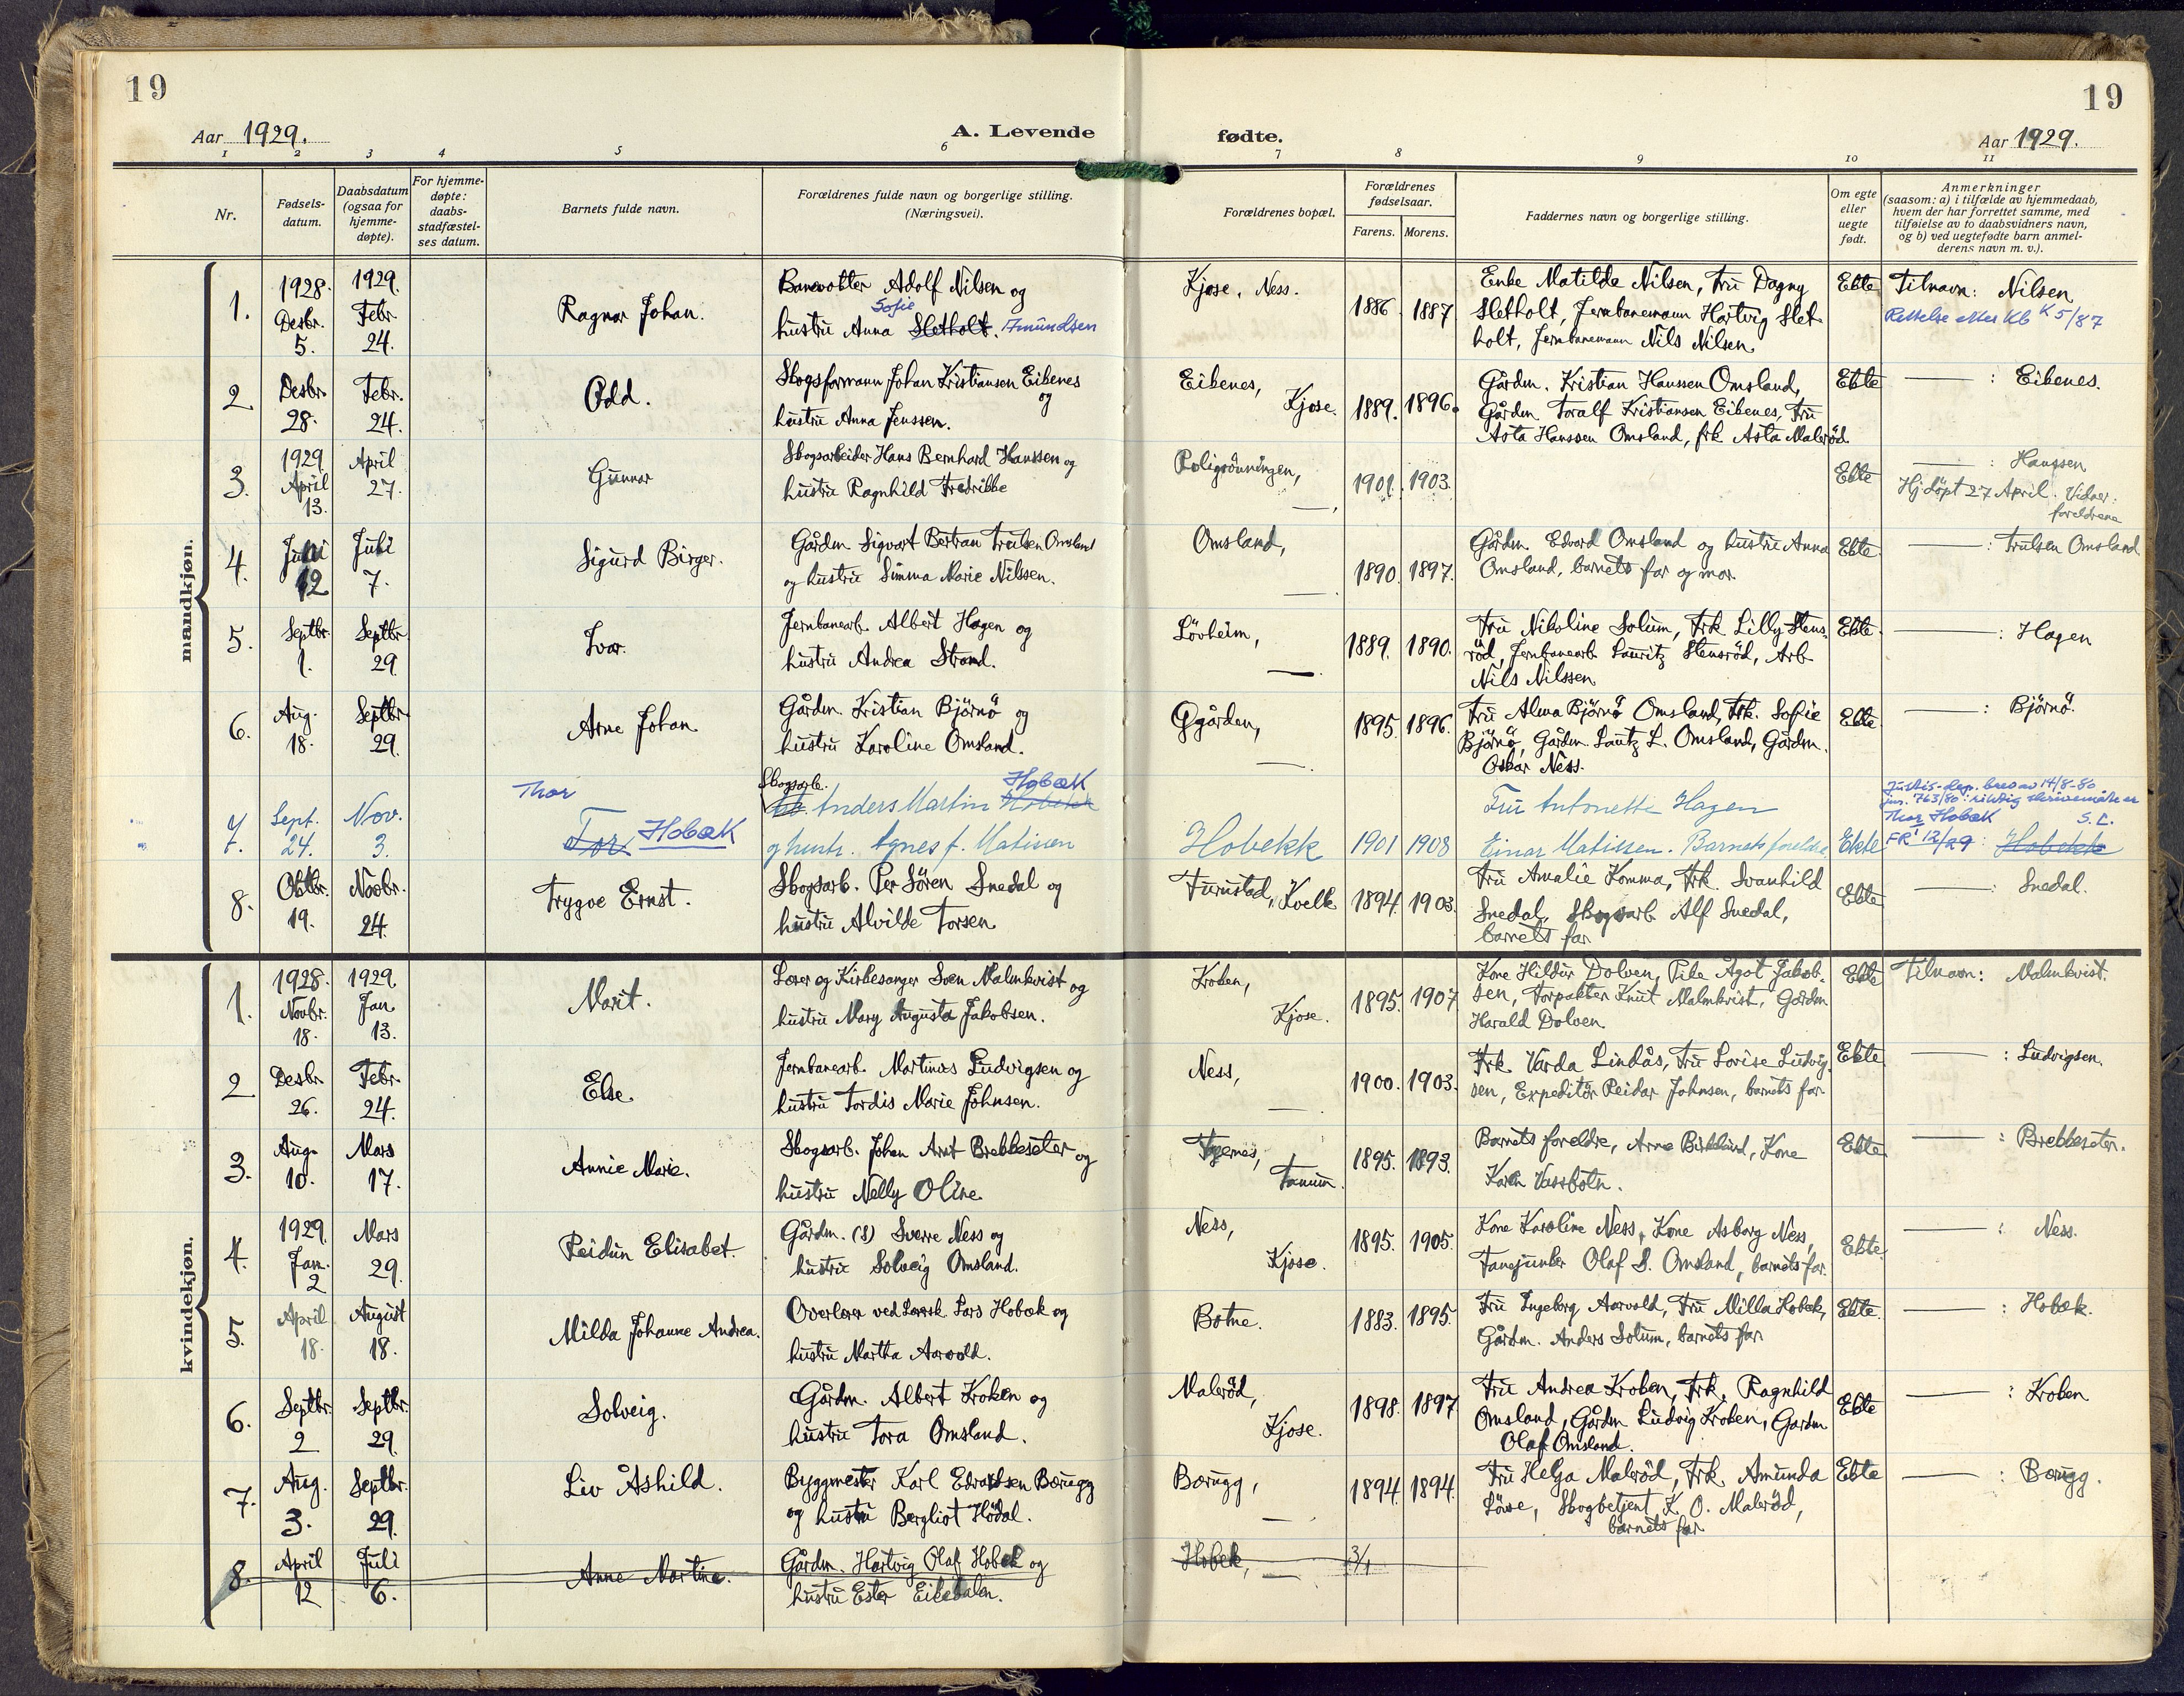 19
19
Aar 1929.
A. Levende
fødte.
Aar 1929.
1 2 3 4 5 6 7 8 9 10 11
Nr.
Fødsels-
datum.
Daabsdatum
(ogsaa for
hjemme-
døpte).
For hjemme-
døpte:
daabs-
stadfæstel-
ses datum.
Barnets fulde navn.
Forældrenes fulde navn og borgerlige stilling.
(Næringsvei).
Forældrenes bopæl.
Forældrenes
fødselsaar.
Farens. Morens.
Faddernes navn og borgerlige stilling.
Om egte
eller
uegte
født.
Anmerkninger
(saasom: a) i tilfælde av hjemmedaab,
hvem der har forrettet samme, med
tilføielse av to daabsvidners navn,
og b) ved uegtefødte barn anmel-
derens navn m. v.).
mandkjøn.
1.
1928.
Desbr.
5.
1929.
Febr.
24.
Ragnar Johan.
Banevokter Adolf Nilsen og
Sofie
hustru Anna Sletholt. Amundsen
Kjose, Ness.
1886 1887
Enke Matilde Nilsen, Fru Dagny
Sletholt, Jernbanemann Hartvig Slet-
holt, Jernbanemann Nils Nilsen.
Ekte
Tilnavn: Nilsen
Rettelse etter Kb K 5/87
2.
Desbr.
28.
Febr.
24.
Odd.
Skogsformann Johan Kristiansen Eikenes
og
hustru Anna Jenssen.
Eikenes,
Kjose.
1889. 1896.
Gårdm. Kristian Hanssen Omsland,
Gårdm. Toralf Kristiansen Eikenes, Fru
Asta Hanssen Omsland, frk. Asta Malerød.
Ekte
— : Eikenes.
3.
1929
April
13.
April
27.
Gunnar
Skogsarbeider Hans Bernhard Hanssen og
hustru Ragnhild Fredrikke
Roligrönningen,
—.
1901. 1903.
Ekte
— : Hanssen
Hj.döpt 27 April. Vidner:
foreldrene
4.
Juni
12
Juli
7.
Sigurd Birger.
Gårdm. Sigvart Bertran Trulsen Omsland
og hustru Simma Marie Nilssen.
Omsland,
—.
1890. 1897.
Gårdm. Edvard Omsland og hustru Anna
Omsland, barnets far og mor.
Ekte.
— : Trulsen Omsland.
5.
Septbr.
1.
Septbr.
29.
Ivar.
Jernbanearb. Albert Hagen og
hustru Andrea Strand.
Lövheim,
—.
1889. 1890.
Fru Nikoline Solum, Frk. Lilly Stens-
röd, Jernbanearb. Lauritz Stensröd, Arb.
Nils Nilssen.
Ekte.
— : Hagen
6.
Aug.
18.
Septbr.
29.
Arne Johan.
Gårdm. Kristian Björnö og
hustru Karoline Omsland.
Øgården,
—.
1895. 1896.
Fru Alma Björnö Omsland, Frk. Sofie
Björnö, Gårdm. Lautz L. Omsland, Gårdm.
Oskar Ness.
Ekte.
— : Björnö.
7.
Sept.
24.
Nov.
3.
Thor
Tor Hobæk
Skogsarb. Hobæk
Anders Martin Hobekk
og hustr. Agnes f. Matissen
Hobekk
1901 1908
Fru Antonette Hagen
Einar Matissen. Barnets foreldre.
Ekte
Justis-dep. brev av 14/8-80
jnr. 763/80: riktig skrivemåte er
Thor Hobæk S.L.
FR 12/29: Hobekk
8.
Oktbr.
19.
Novbr.
24.
Trygve Ernst.
Skogsarb. Per Sören Snedal og
hustru Alvilde Torsen
Furustad, Kvelle
1894. 1903.
Fru Amalie Komma, Frk. Svanhild
Snedal, Skogsarb. Alf Snedal,
barnets far
Ekte
— : Snedal.
kvindekjøn.
1.
1928.
Novbr.
18.
1929.
Jan.
13.
Marit.
Lærer og Kirkesanger Sven Malmkvist og
hustru Mary Augusta Jakobsen.
Kroken,
Kjose.
1895. 1907
Kone Hildur Dolven, Pike Ågot Jakob-
sen, Forpakter Knut Malmkvist, Gårdm.
Harald Dolven
Ekte
Tilnavn: Malmkvist.
2
Desbr.
26.
Febr.
24.
Else.
Jernbanearb. Martinus Ludvigsen og
hustru Tordis Marie Johnsen.
Ness,
—.
1900. 1903.
Frk. Varda Lindås, Fru Lovise Ludvig-
sen, Expeditör Reidar Johnsen, barnets far.
Ekte
— : Ludvigsen.
3.
Aug.
10.
Mars
17.
Annie Marie.
Skogsarb. Johan Arnt Brekkeseter og
hustru Nelly Oline.
Tanum.
1895. 1893.
Barnets foreldre, Arne Birkelund, Kone
Karen Vassbotn.
Ekte
— : Brekkeseter.
4.
1929.
Jan.
2
Mars
29.
Reidun Elisabet.
Gårdm. (S) Sverre Ness og
hustru Solveig Omsland.
Ness,
Kjose.
1895. 1905.
Kone Karoline Ness, Kone Asborg Ness,
Fanejunker Olaf S. Omsland, barnets far.
Ekte.
— : Ness.
5.
April
18.
August
18.
Milda Johanne Andrea.
Overlærer ved Lærersk. Lars Hobæk og
hustru Martha Aarvold.
Botne.
1883. 1895.
Fru Ingeborg Aarvold, Fru Milla Hobæk,
Gårdm. Anders Solum, barnets far.
Ekte.
— : Hobæk.
6.
Septbr.
2
Septbr.
29.
Solveig.
Gårdm. Albert Kroken og
hustru Tora Omsland.
Malerød,
Kjose.
1898. 1897
Fru Andrea Kroken, Frk. Ragnhild
Omsland, Gårdm Ludvig Kroken, Gårdm
Olaf Omsland.
Ekte
— : Kroken
7.
Aug.
3.
Septbr.
29.
Liv Åshild.
Byggmester Karl Edvardsen Bærugg
og hustru Bergliot Hödal.
Bærugg,
—
1894. 1894.
Fru Helga Maleröd, Frk. Amunda
Skogbetjent K. O. Maleröd,
barnets far
Ekte
— : Bærugg.
8.
April
12
Juli
6.
Anne Martine.
Gårdm. Hartvig Olaf Hobæk og
hustru Ester Eikedalen.
Hobæk,
—
3/1